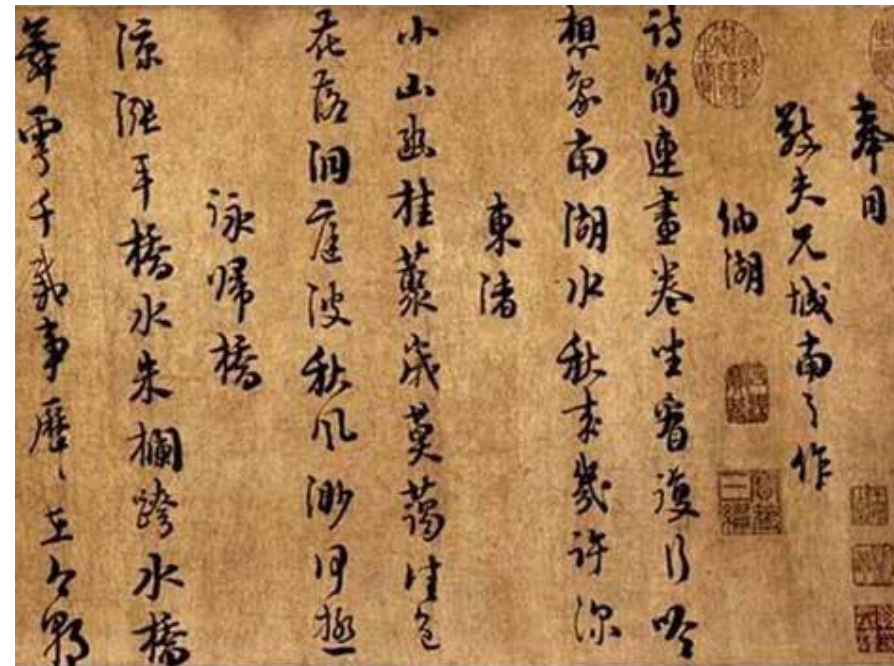 奉同
敬夫兄城南之作
納湖
詩筒連畫卷坐看復行吟
想象南湖水秋來幾許深
東渚
小山幽桂叢歲莫藹佳色
花落洞庭波秋風渺何極
詠歸橋
綠漲平橋水朱欄跨水橋
舞雩千載事歷〻在今朝